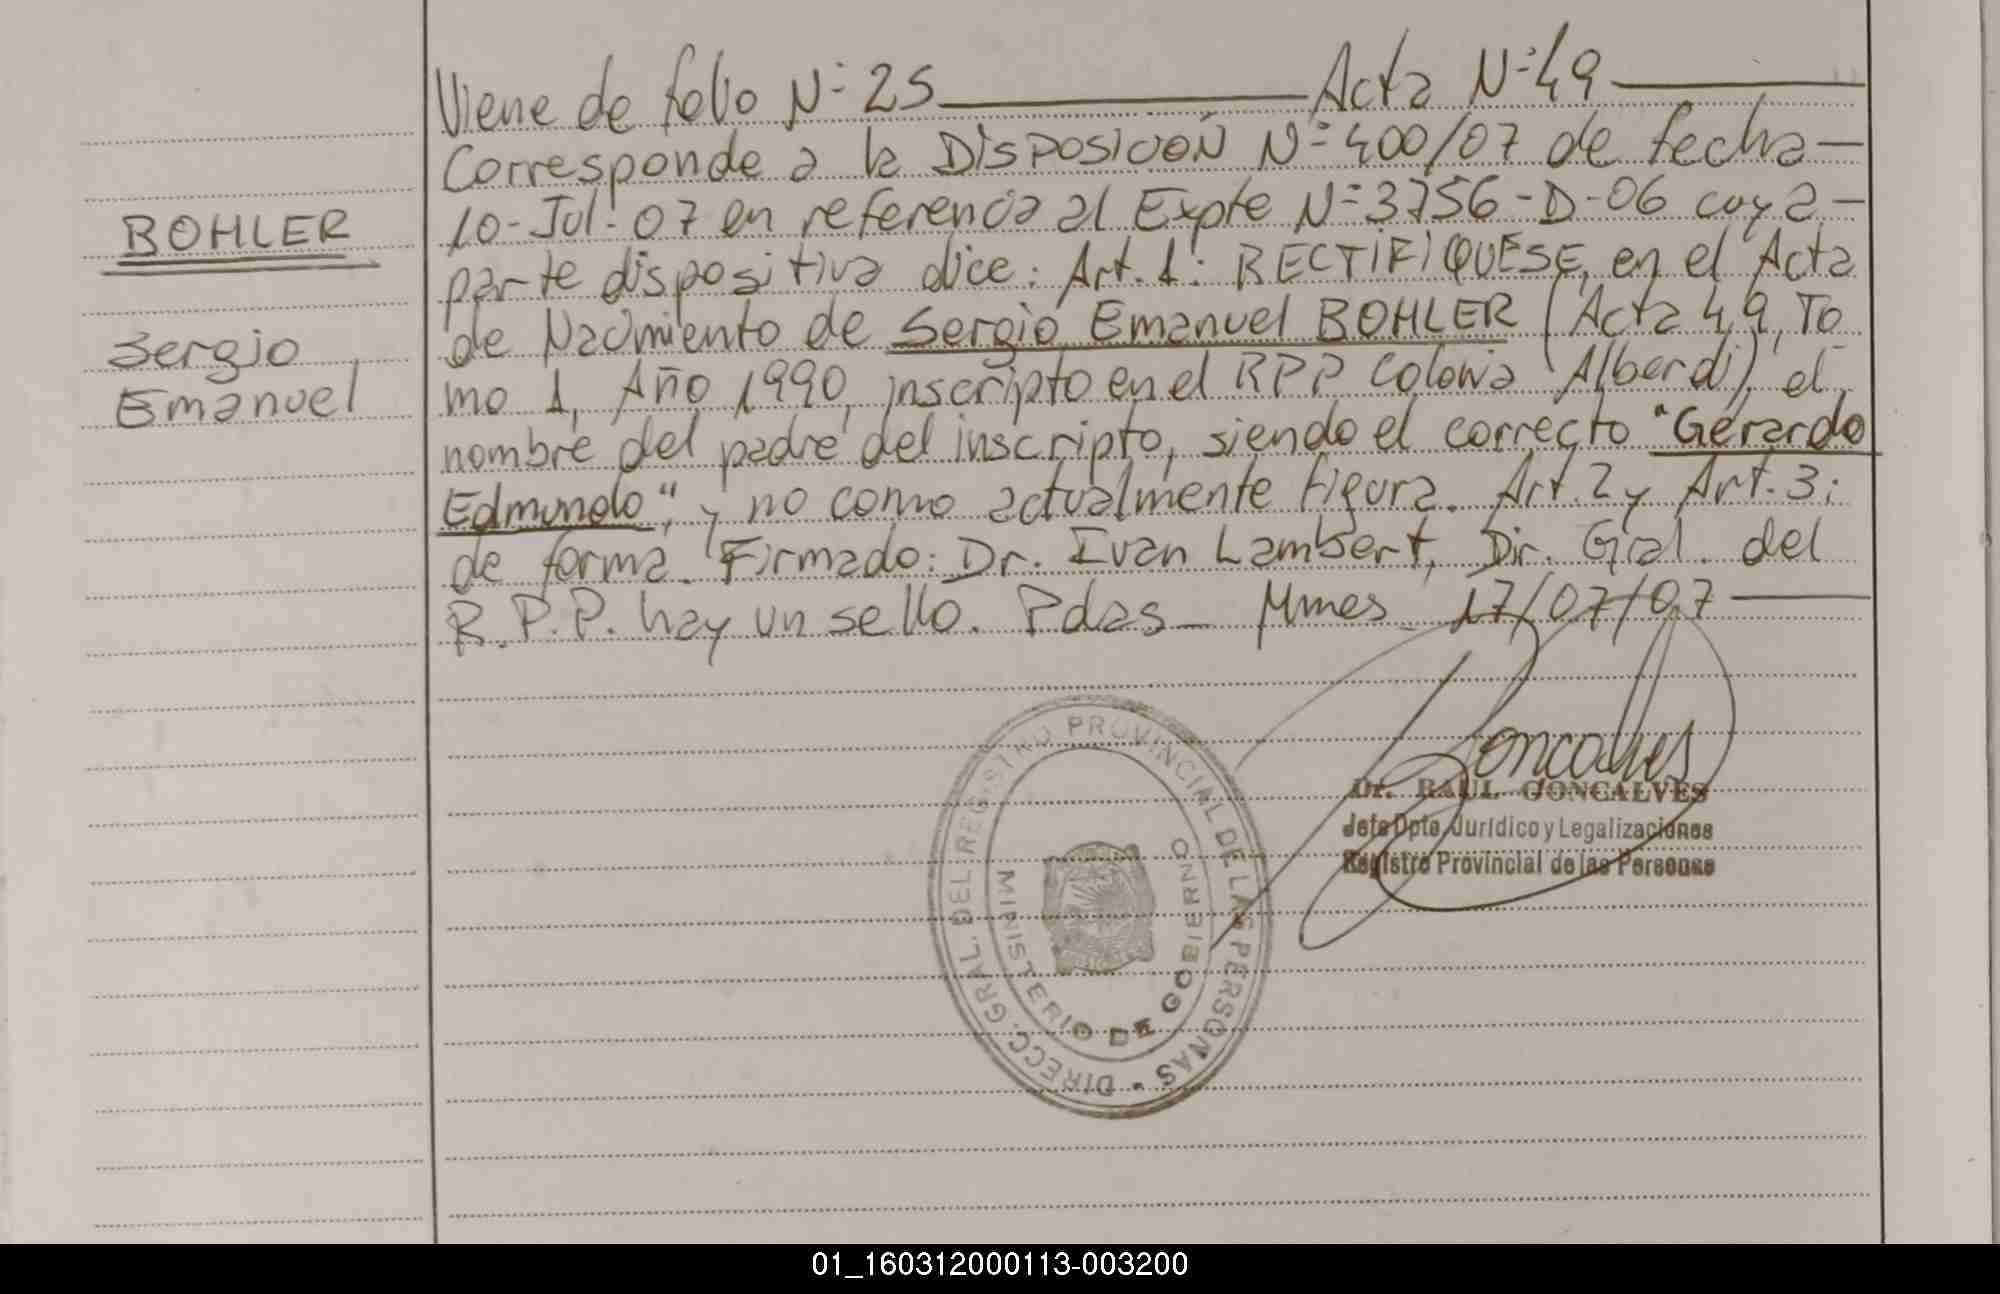 BOHLER
Sergio
Emanuel
Viene de folio N° 25 Acta N° 49
Corresponde a la DISPOSICION N° 400/07 de fecha
10-Jul-07 en referencia al Expte N° 3756-D-06 cuya
parte dispositiva dice: Art. 1: RECTIFIQUESE, en el Acta
de Nacimiento de Sergio Emanuel BOHLER (Acta 49, To
mo 1, Año 1990, inscripto en el RPP Colonia Alberdi), el
nombre del padre del inscripto, siendo el correcto "Gerardo
Edmundo", y no como actualmente figura. Art. 2 y Art. 3:
de forma. Firmado: Dr. Ivan Lambert, Dir. Gral. del
R.P.P. hay un sello. Pdas - Mnes 17/07/07
Goncalves
Dr. RAUL GONCALVES
Jefe Dpto. Jurídico y Legalizaciones
Registro Provincial de las Personas
DIRECC. GRAL. DEL REGISTRO PROVINCIAL DE LAS PERSONAS
MINISTERIO DE GOBIERNO
01_160312000113-003200